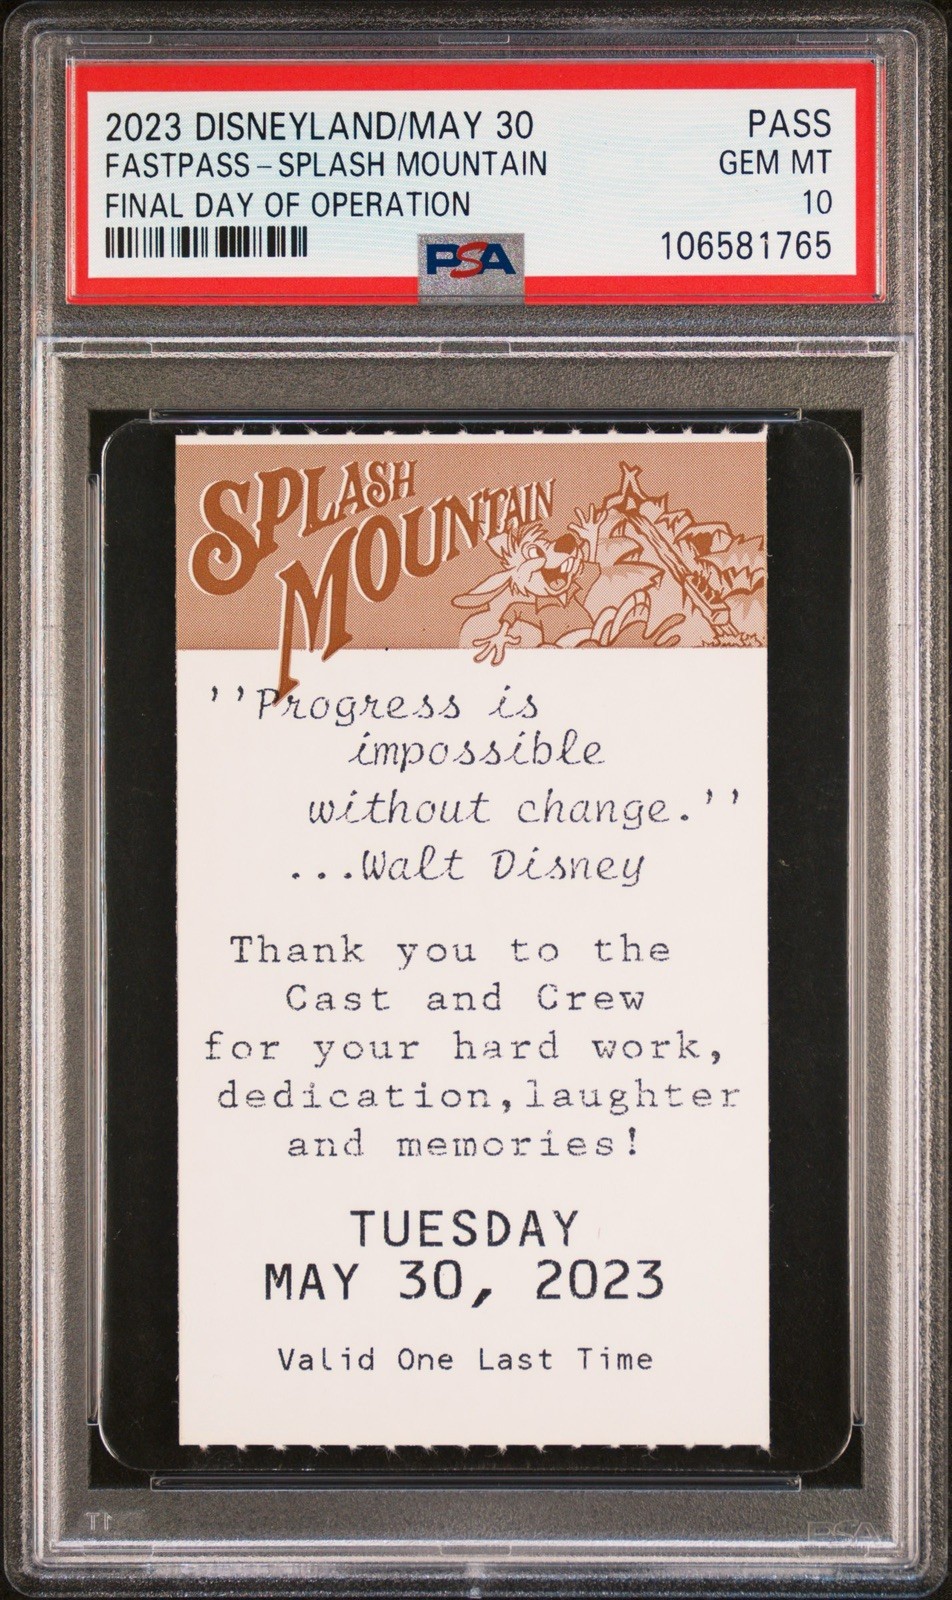 2023 DISNEYLAND/MAY 30 PASS
FASTPASS-SPLASH MOUNTAIN GEM MT
FINAL DAY OF OPERATION 10
PSA 106581765
SPLASH
MOUNTAIN
''Progress is
impossible
without change.''
...Walt Disney
Thank you to the
Cast and Crew
for your hard work,
dedication,laughter
and memories!
TUESDAY
MAY 30, 2023
Valid One Last Time
PSA